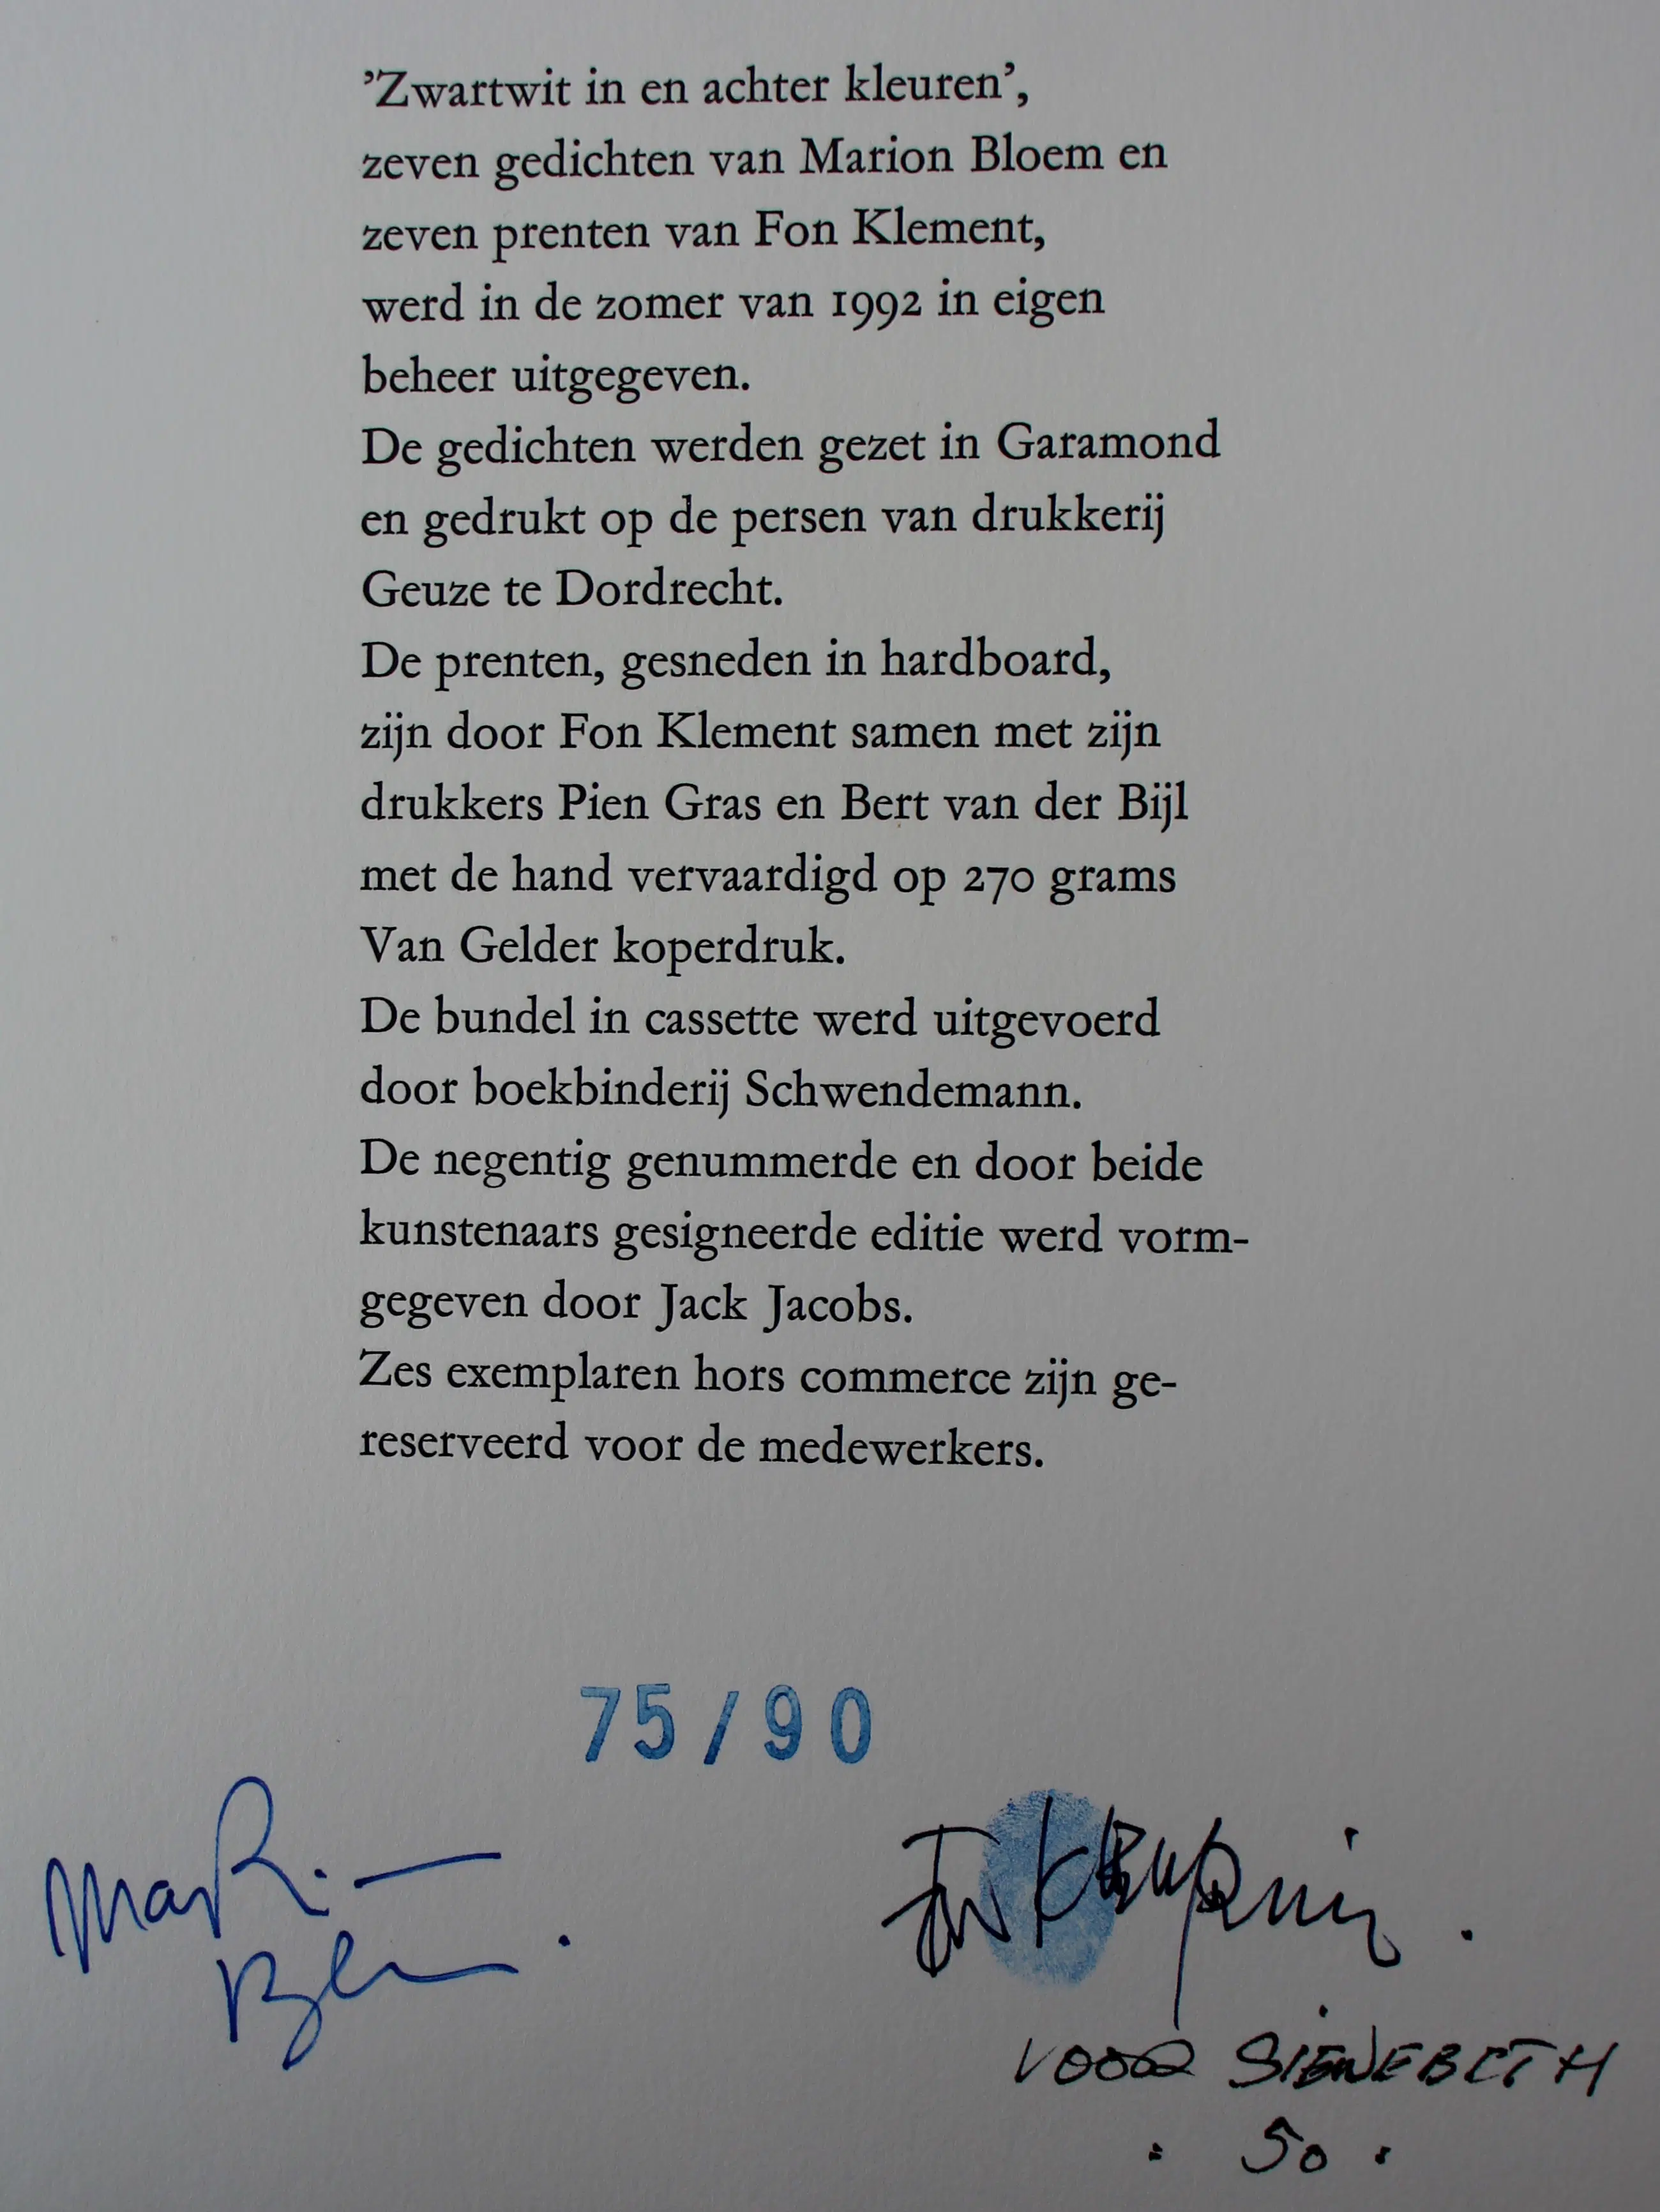 ’Zwartwit in en achter kleuren’,
zeven gedichten van Marion Bloem en
zeven prenten van Fon Klement,
werd in de zomer van 1992 in eigen
beheer uitgegeven.
De gedichten werden gezet in Garamond
en gedrukt op de persen van drukkerij
Geuze te Dordrecht.
De prenten, gesneden in hardboard,
zijn door Fon Klement samen met zijn
drukkers Pien Gras en Bert van der Bijl
met de hand vervaardigd op 270 grams
Van Gelder koperdruk.
De bundel in cassette werd uitgevoerd
door boekbinderij Schwendemann.
De negentig genummerde en door beide
kunstenaars gesigneerde editie werd vorm-
gegeven door Jack Jacobs.
Zes exemplaren hors commerce zijn ge-
reserveerd voor de medewerkers.
75/90
VOOR SIENEBETH
. 50 .